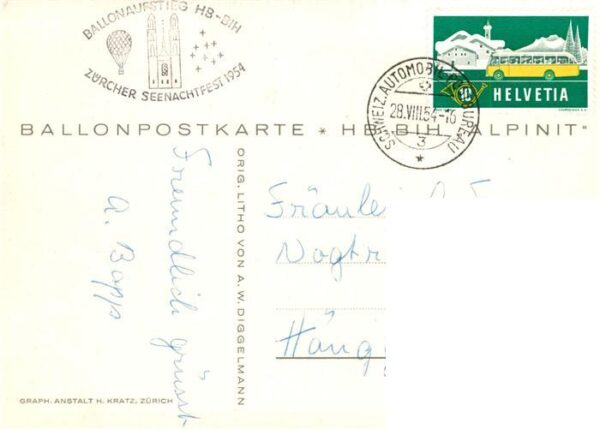 BALLONAUFSTIEG HB-BIH
ZÜRCHER SEENACHTFEST 1954
10 HELVETIA
SCHWEIZ. AUTOMOBIL-
28.VIII.54-16
3
BALLONPOSTKARTE * HB-BIH "ALPINIT"
Freundlich grüsst
A. Bopp
ORIG. LITHO VON A. W. DIGGELMANN
Fräule
Hängg
GRAPH. ANSTALT H. KRATZ, ZÜRICH